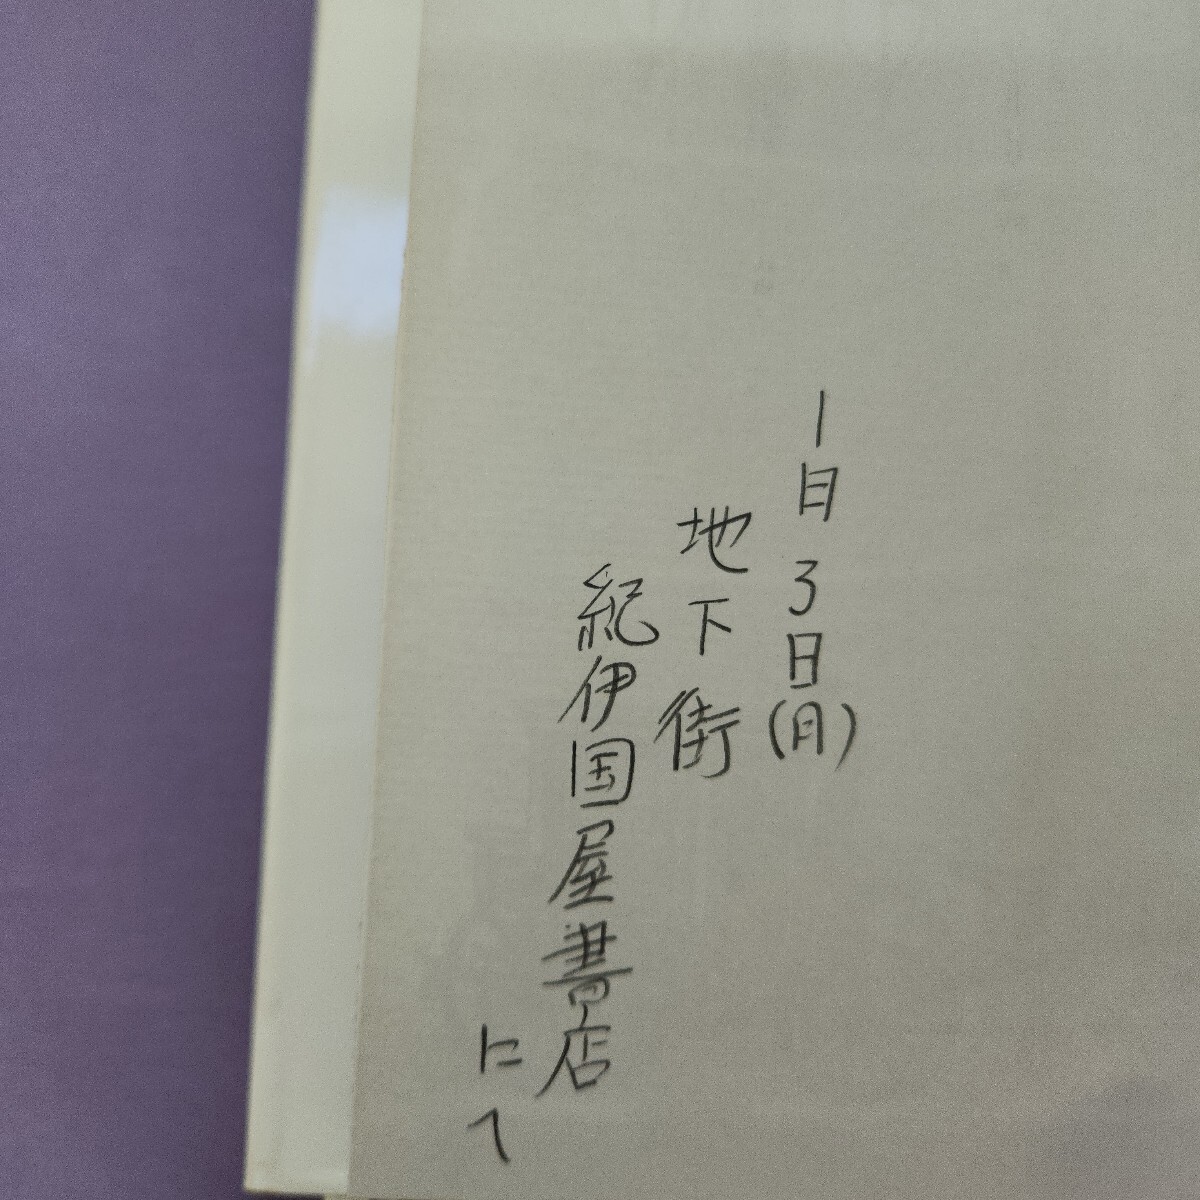 1月3日(月)
地下街
紀伊国屋書店
にて